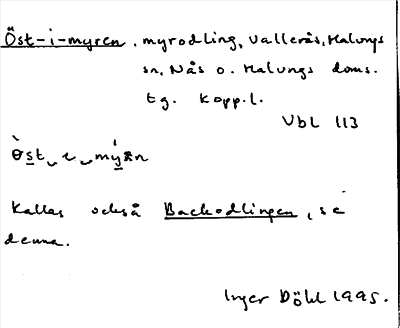 Öst-i-myren, myrodling, Vallerås, Malungs
sn, Nås o. Malungs doms.
tg. Kopp.l.
Vbl 113
Kallas också Backodlingen, se
denna.
Inger Döhl 1995.